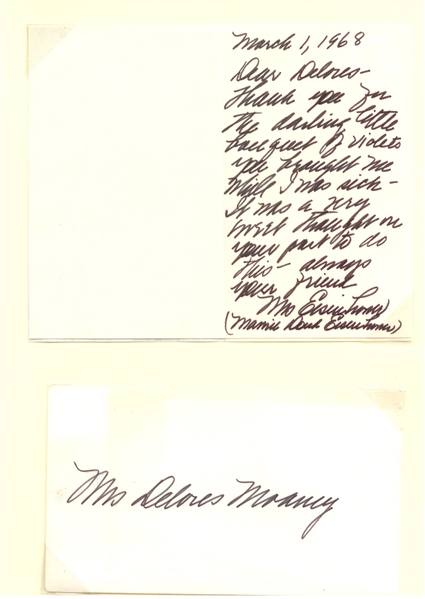 March 1, 1968
Dear Delores-
Thank you for
the darling little
bouquet of violets
you brought me
while I was sick-
It was a very
sweet thought on
your part to do
this- always
your friend
Mrs Eisenhower
(Mamie Doud Eisenhower)
Mrs Delores Moaney